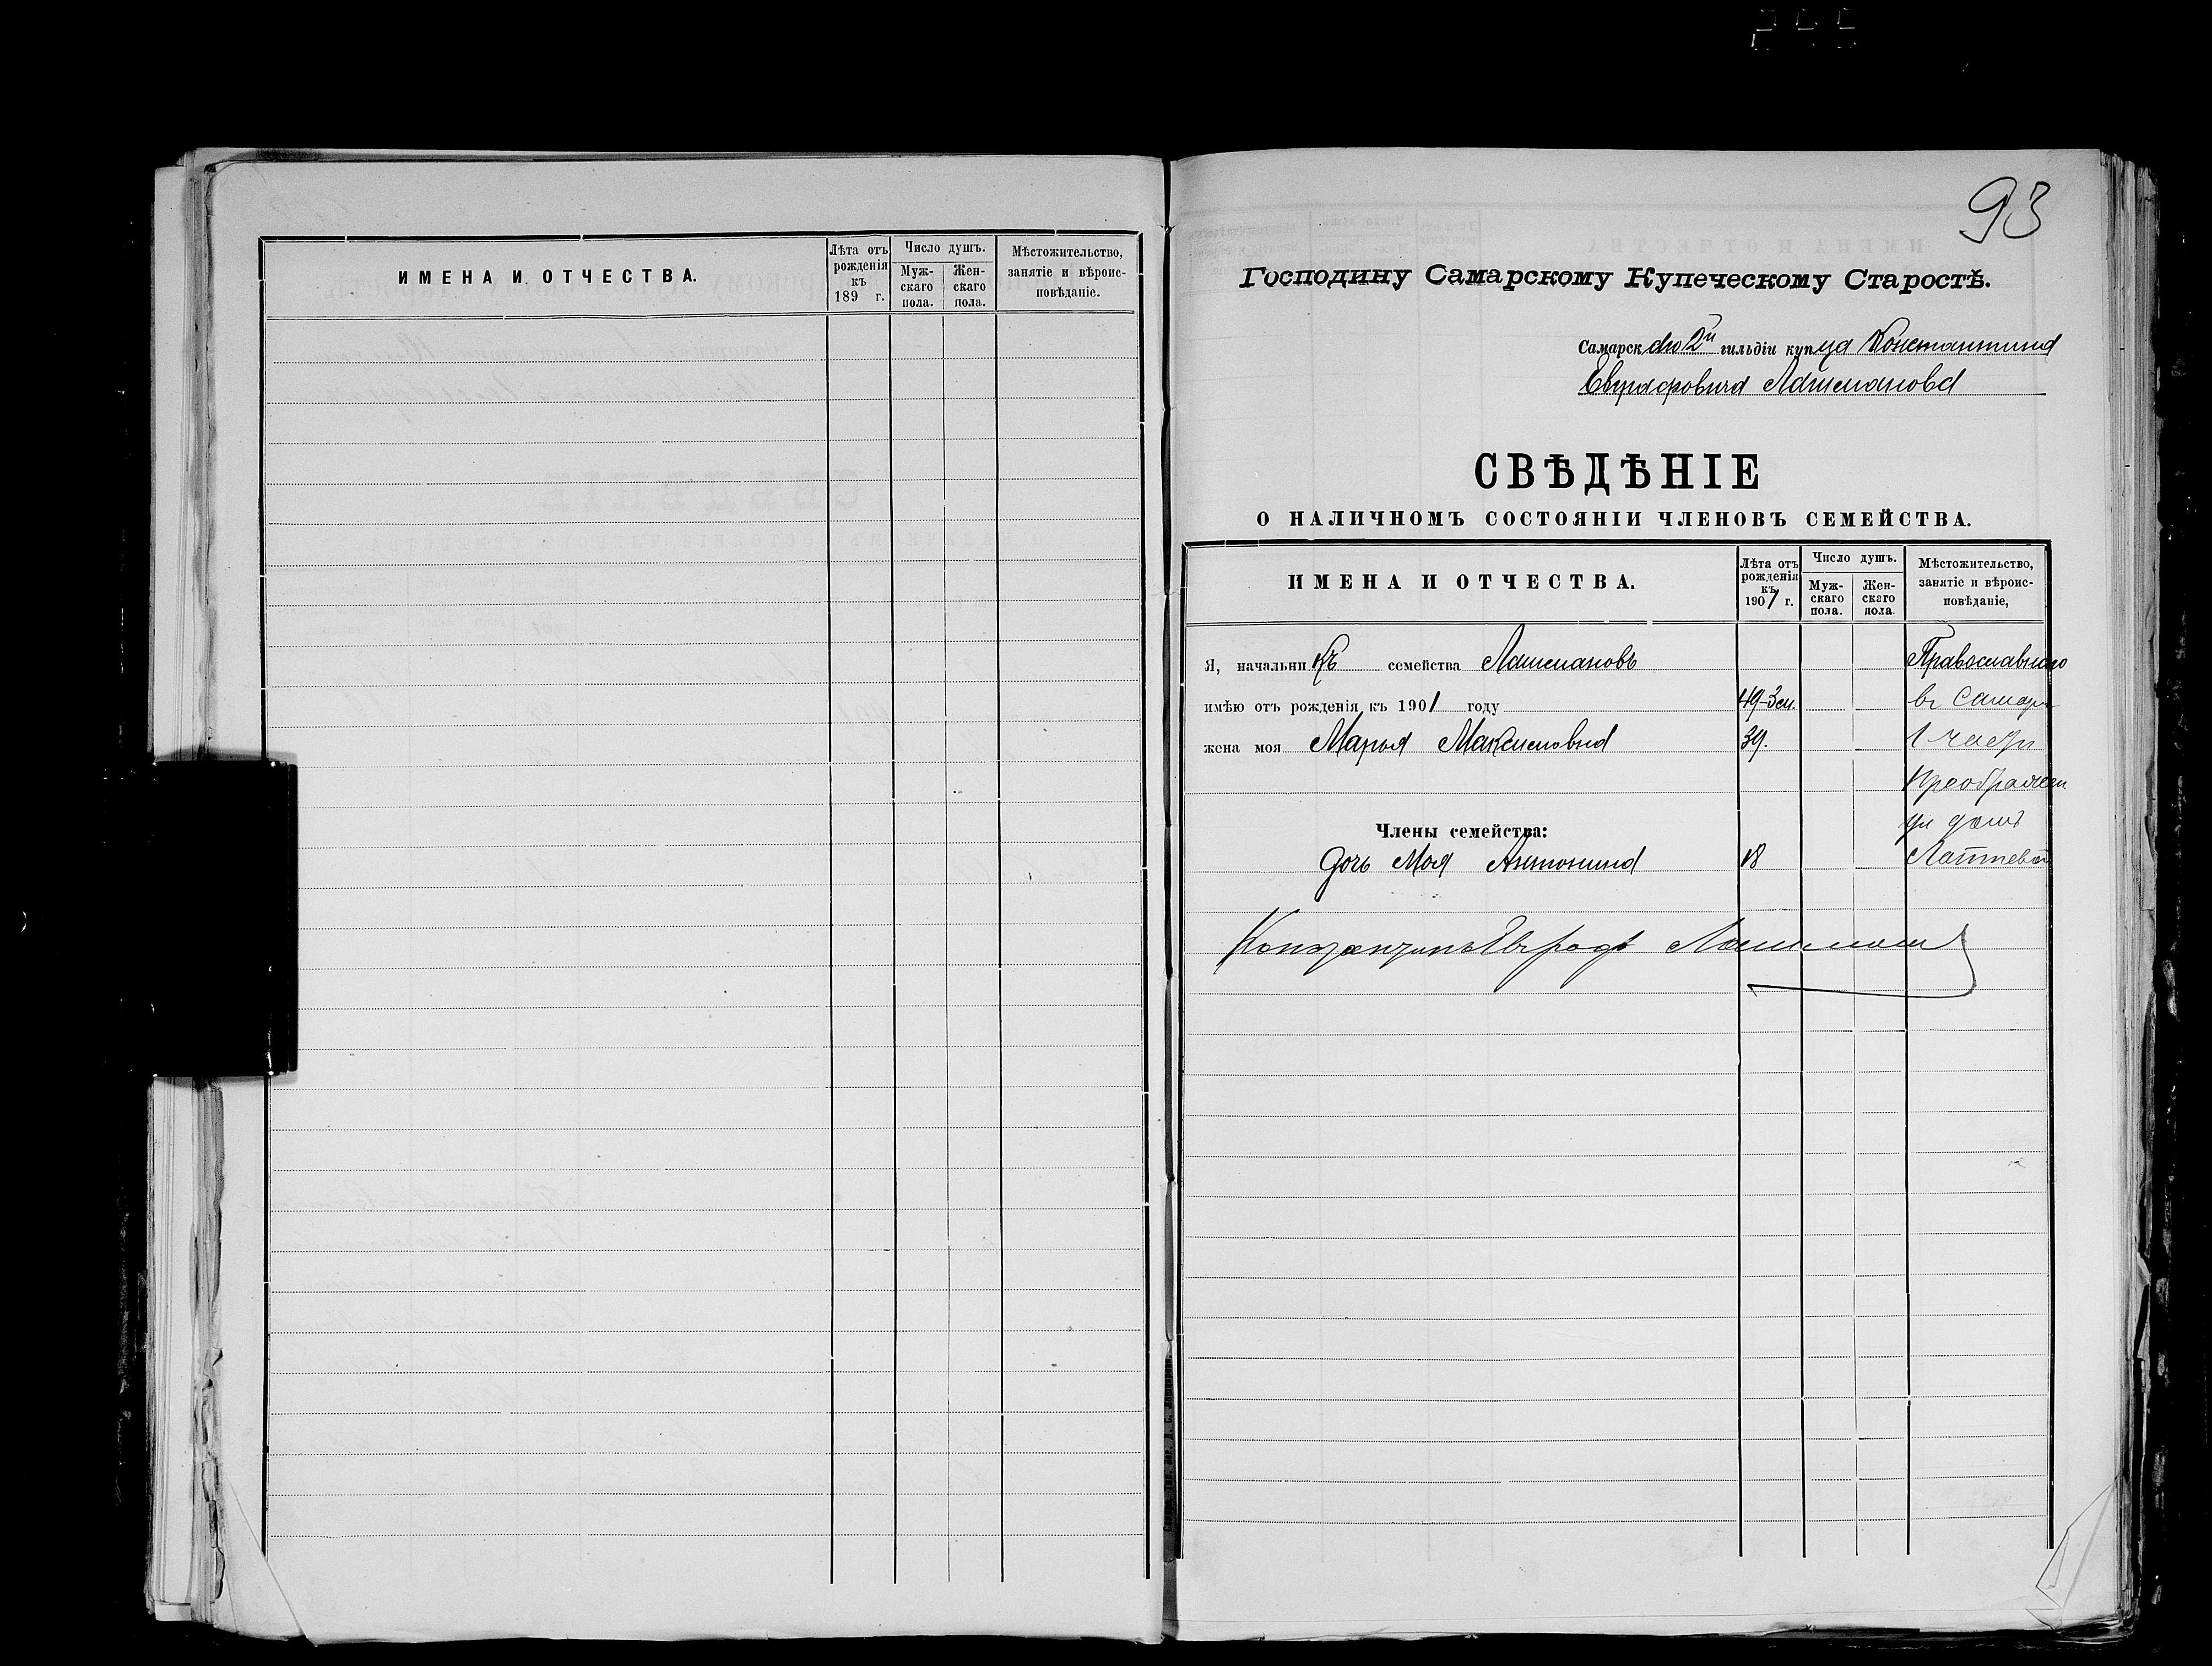 ИМЕНА И ОТЧЕСТВА.
Лѣта отъ рожденія къ 189 г.
Число душъ.
Муж-скаго пола.
Жен-скаго пола.
Мѣстожительство, занятіе и вѣроис-повѣданіе.
93
Господину Самарскому Купеческому Старостѣ.
Самарскаго 2й гильдіи купца Константина
Евграфовича Лашманова
СВѢДѢНІЕ
О НАЛИЧНОМЪ СОСТОЯНІИ ЧЛЕНОВЪ СЕМЕЙСТВА.
ИМЕНА И ОТЧЕСТВА.
Лѣта отъ рожденія къ 1901 г.
Число душъ.
Муж-скаго пола.
Жен-скаго пола.
Мѣстожительство, занятіе и вѣроис-повѣданіе,
Я, начальникъ семейства Лашмановъ Православнаго
имѣю отъ рожденія къ 1901 году 49 въ Самарѣ
жена моя Марья Максимовна 39. 1 части
Преображен
Члены семейства: ул домъ
Дочь Моя Антонина 18 Лаптевой
Константинъ Евграфо Лашманов